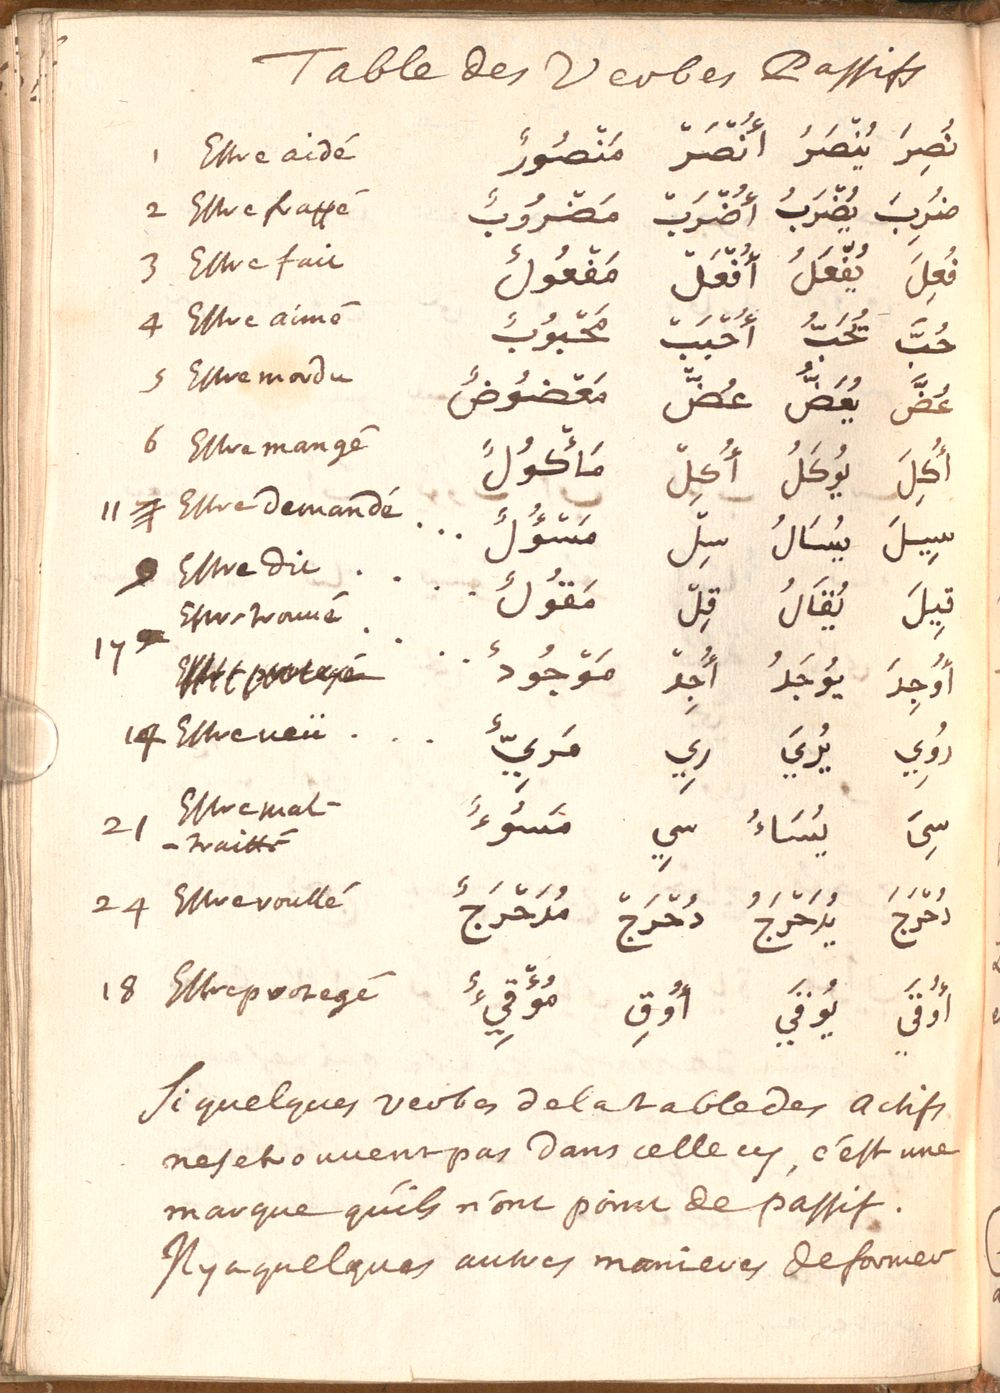 Table des Verbes Passifs
1 Estre aidé نُصِرَ يُنْصَرُ أُنْصَرْ مَنْصُورٌ
2 Estre frappé ضُرِبَ يُضْرَبُ أُضْرَبْ مَضْرُوبٌ
3 Estre fait فُعِلَ يُفْعَلُ أُفْعَلْ مَفْعُولٌ
4 Estre aimé حُبَّ يُحَبُّ أُحْبَبْ مَحْبُوبٌ
5 Estre mordu عُضَّ يُعَضُّ عُضَّ مَعْضُوضٌ
6 Estre mangé أُكِلَ يُوكَلُ أُكِلْ مَأْكُولٌ
11 Estre demandé ... سِيلَ يُسَالُ سِلْ مَسْؤُلٌ
9 Estre dit .... قِيلَ يُقَالُ قِلْ مَقُولٌ
17 Estre trouvé .... أُوُجِدَ يُوجَدُ أُجِدْ مَوْجُودٌ
Estre protegé
14 Estre veü ... رُوِي يُرَيَ رِي مَرِيٌّ
21 Estre mal-
-traitté سِيَ يُسَاءُ سِي مَسُوءٌ
24 Estre roullé دُحْرَجَ يُدَحْرَجُ دُحْرَجْ مُدَحْرَجٌ
18 Estre protegé أُوُقَيَ يُوقَيَ أُوُقِ مُؤْقِيءٌ
Si quelques verbes de la table des actifs
ne se trouvent pas dans celle cy, c'est une
marque qu'ils n'ont point de passif.
Il y a quelques autres manieres de former